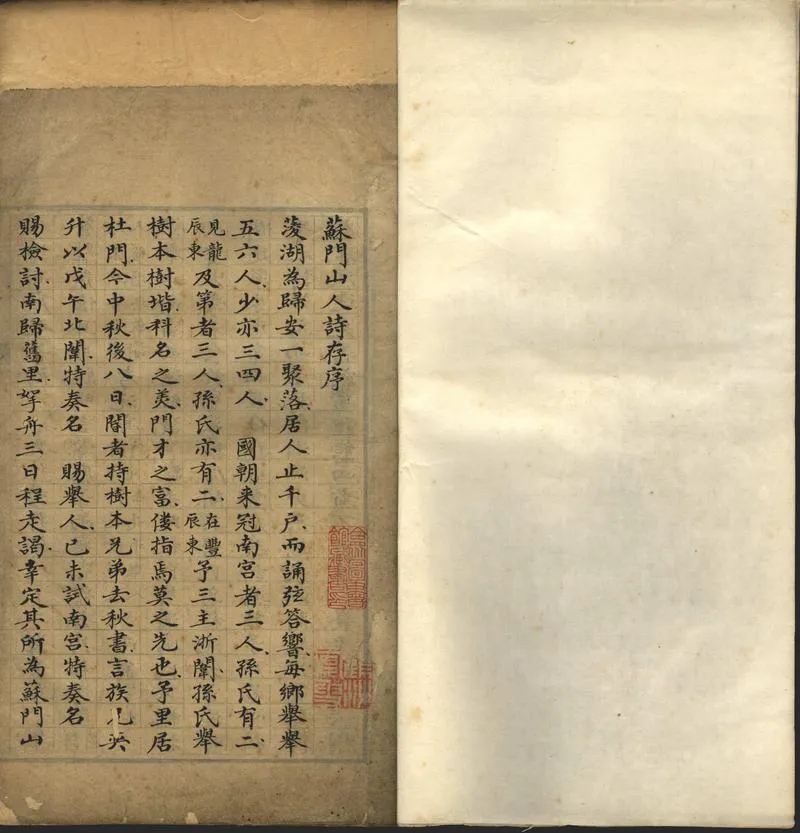 蘇門山人詩存序
菱湖為歸安一聚落居人止千戶而誦弦答響每鄉舉舉
五六人少亦三四人 國朝来冠南宮者三人孫氏有二
見龍辰東及第者三人孫氏亦有二在豐辰東予三主浙闈孫氏舉
樹本樹堦科名之美門才之富僂指焉莫之先也予里居
杜門今中秋後八日閽者持樹本兄弟去秋書言族
升以戊午北闈特奏名 賜舉人己未試南宮特奏名
賜檢討南歸舊里挐舟三日程走謁幸定其所為蘇門山